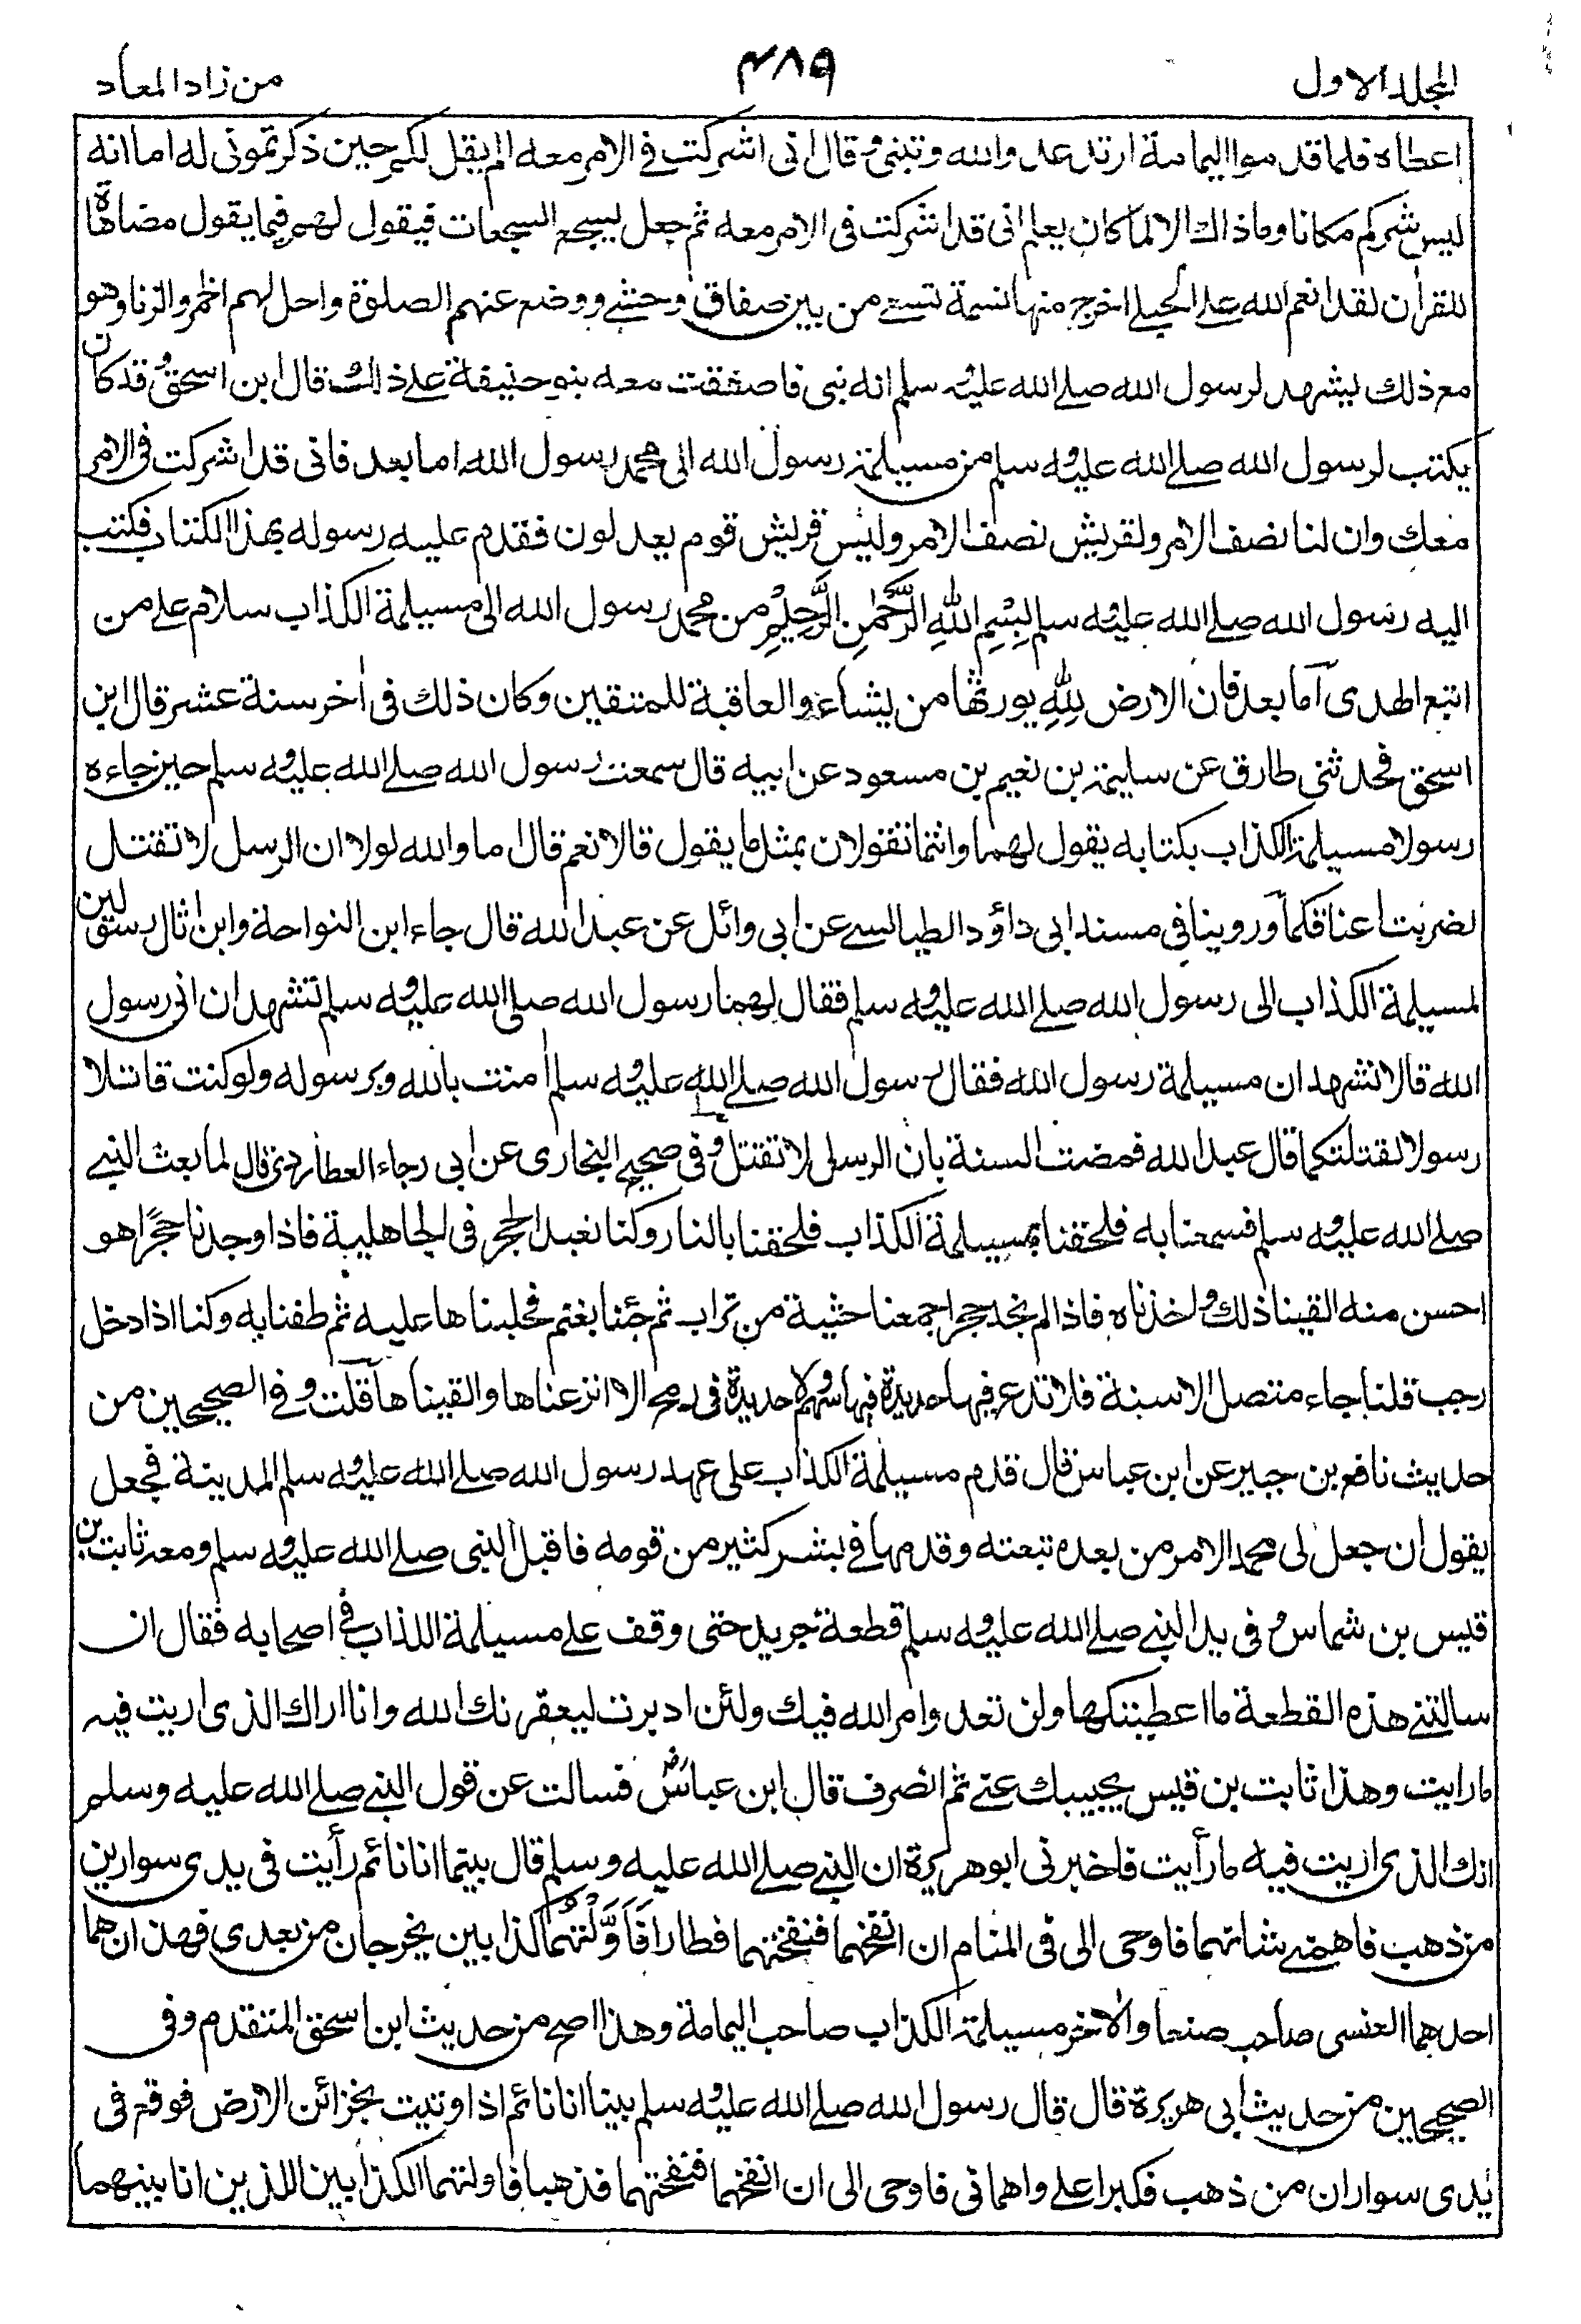 المجلد الاول
۴۸۹
من زاد المعاد
اعطاه فلما قدموا اليمامة ارتد عدو الله وتنبى وقال انى اشركت فى الامر معه الم يقل لكم حين ذكرتمونى له اما انه
ليس شركم مكانا وما ذاك الا لما كان يعلم انى قد اشركت فى الامر معه ثم جعل يسجع السجعات فيقول لهم فيما يقول مضاهاة
للقرأن لقد انعم الله على الحبلى اخرج منها نسمة تسعى من بين صفاق وحشى ووضع عنهم الصلوة واحل لهم الخمر والزنا وهو
مع ذلك يشهد لرسول الله صلى الله عليه وسلم انه نبى فاصفقت معه بنو حنيفة على ذلك قال ابن اسحق وقد كان
يكتب لرسول الله صلى الله عليه وسلم من مسيلمة رسول الله الى محمد رسول الله اما بعد فانى قد اشركت فى الامر
معك وان لنا نصف الامر ولقريش نصف الامر وليس قريش قوم يعدلون فقدم عليه رسوله بهذا الكتاب فكتب
اليه رسول الله صلى الله عليه وسلم بِسْمِ اللهِ الرَّحْمٰنِ الرَّحِيْمِ من محمد رسول الله الى مسيلمة الكذاب سلام على من
اتبع الهدى اما بعد فان الارض لِلّٰهِ يورثها من يشاء والعاقبة للمتقين وكان ذلك فى اٰخر سنة عشر قال ابن
اسحق فحدثنى طارق عن سليمة بن نعيم بن مسعود عن ابيه قال سمعت رسول الله صلى الله عليه وسلم حين جاءه
رسولا مسيلمة الكذاب بكتابه يقول لهما وانتما تقولان بمثل ما يقول قالا نعم قال اما والله لولا ان الرسل لا تقتل
لضربت اعناقكما وروينا فى مسند ابى داؤد الطيالسى عن ابى وائل عن عبد الله قال جاء ابن النواحة وابن اثال رسولين
لمسيلمة الكذاب الى رسول الله صلى الله عليه وسلم فقال لهما رسول الله صلى الله عليه وسلم تشهدان انى رسول
الله قالا نشهد ان مسيلمة رسول الله فقال رسول الله صلى الله عليه وسلم اٰمنت بالله وبرسوله ولو كنت قاتلا
رسولا لقتلتكما قال عبد الله فمضت السنة بان الرسل لا تقتل وفى صحيح البخارى عن ابى رجاء العطاردى قال لما بعث النبى
صلى الله عليه وسلم فسمعنا به فلحقنا بمسيلمة الكذاب فلحقنا بالنار وكنا نعبد الحجر فى الجاهلية فاذا وجدنا حجرًا هو
احسن منه القينا ذلك واخذناه فاذا لم نجد حجرا جمعنا حثية من تراب ثم جئنا بغنم فحلبناها عليه ثم طفنا به وكنا اذا دخل
رجب قلنا جاء منصل الاسنة فلا ندع فيها حديدة فيها سهم ولا حديدة فى رمح الا انتزعناها والقيناها قلت وفى الصحيحين من
حديث نافع بن جبير عن ابن عباس قال قدم مسيلمة الكذاب على عهد رسول الله صلى الله عليه وسلم المدينة فجعل
يقول ان جعل لى محمد الامر من بعده تبعته وقدمها فى بشر كثير من قومه فاقبل النبى صلى الله عليه وسلم ومعه ثابت بن
قيس بن شماس وفى يد النبى صلى الله عليه وسلم قطعة جريد حتى وقف على مسيلمة الكذاب فى اصحابه فقال ان
سالتنى هذه القطعة ما اعطيتكها ولن تعدوا امر الله فيك ولئن ادبرت ليعقرنك الله وانا اراك الذى اريت فيه
ما رايت وهذا ثابت بن قيس يجيبك عنى ثم انصرف قال ابن عباس فسالت عن قول النبى صلى الله عليه وسلم
انك الذى اريت فيه ما رأيت فاخبرنى ابو هريرة ان النبى صلى الله عليه وسلم قال بينما انا نائم رأيت فى يدى سوارين
من ذهب فاهمنى شانهما فاوحى الى فى المنام ان انفخهما فنفختهما فطارا فَاَوَّلْتُهُمَا كذابين يخرجان من بعدى فهذان هما
احدهما العنسى صاحب صنعا والاٰخر مسيلمة الكذاب صاحب اليمامة وهذا اصح من حديث ابن اسحق المتقدم وفى
الصحيحين من حديث ابى هريرة قال قال رسول الله صلى الله عليه وسلم بينا انا نائم اذ اوتيت بخزائن الارض فوقع فى
يدى سواران من ذهب فكبرا على واهمانى فاوحى الى ان انفخهما فنفختهما فذهبا فاولتهما الكذابين اللذين انا بينهما